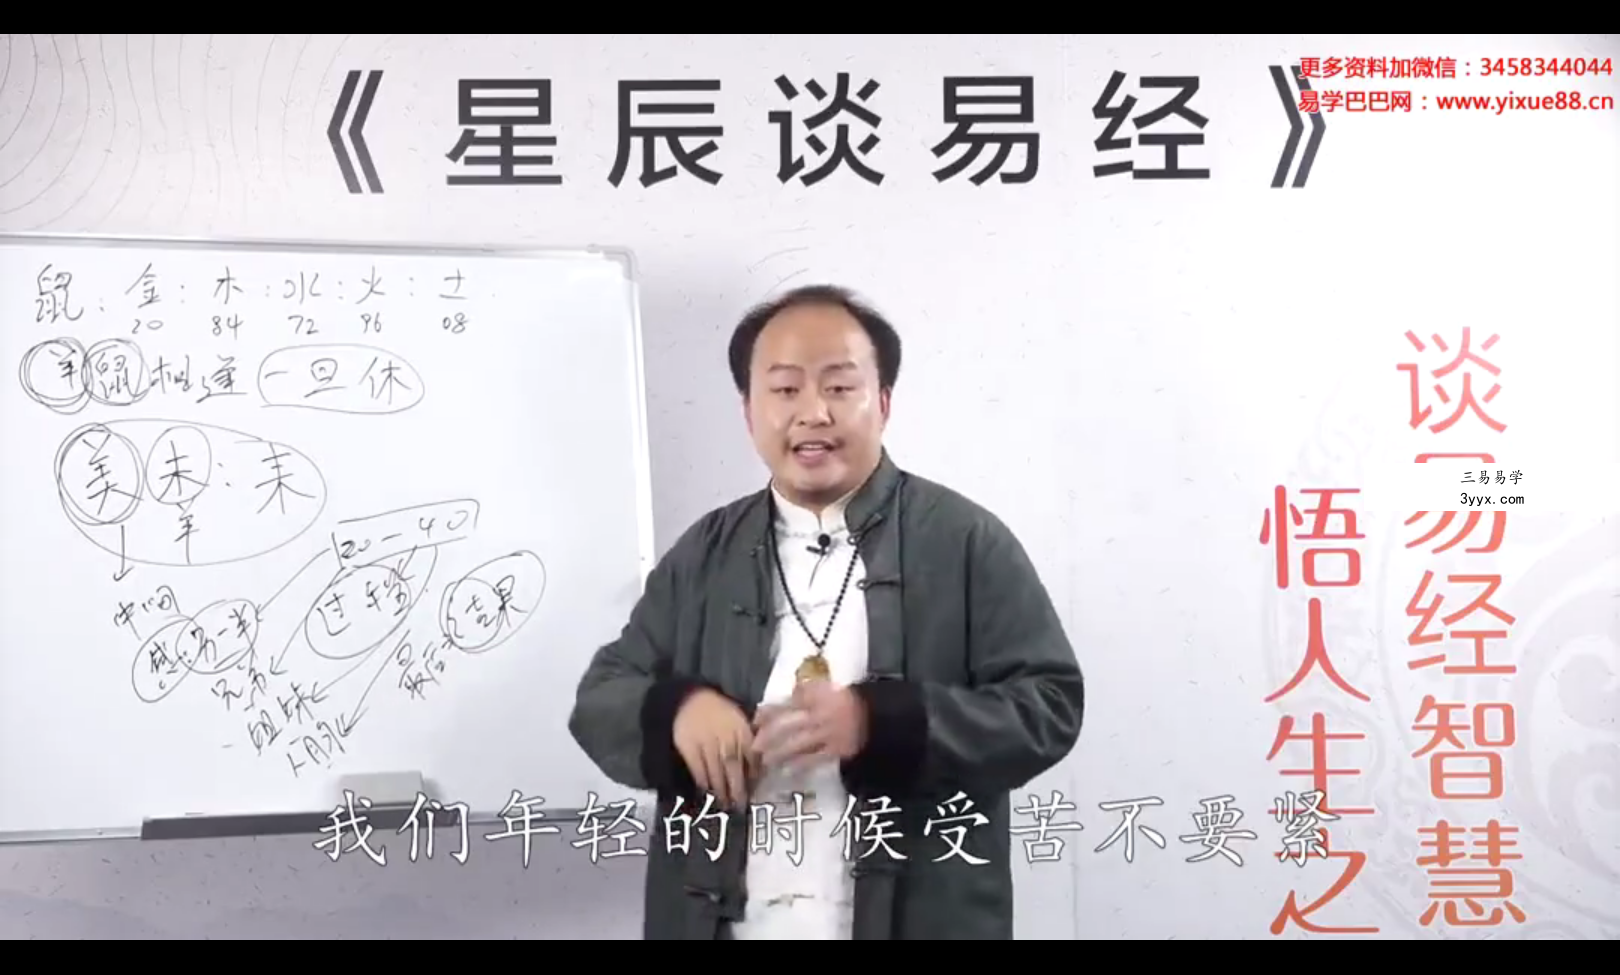 《星辰谈易经》
更多资料加微信：3458344044
易学巴巴网：www.yixue88.cn
鼠：金：木：水：火：土
20 84 72 96 08
羊鼠相逢一旦休
美未：耒
羊
20-40
中间
过程
结果
感：另一半
兄弟
姐妹
人脉
最后
谈易经智慧
悟人生之
三易易学
3yyx.com
我们年轻的时候受苦不要紧